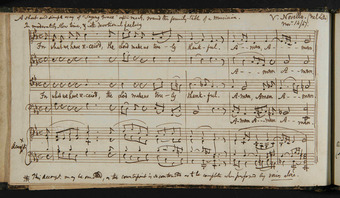 A short and simple way of "Singing Grace" after meat, round the family table of a musician.
In moderately slow time, & with devotional feeling
V. Novello
For what we have received, the Lord make us truly thankful. A - - men, A - - men
A - - - men A - men
For what we have received, the Lord make us truly thankful. Amen, Amen A - men.
Amen A - - men. A - men
accompt
This accompt may be omitted, as the counterpoint is constructed so as to be complete when performed by voices alone.